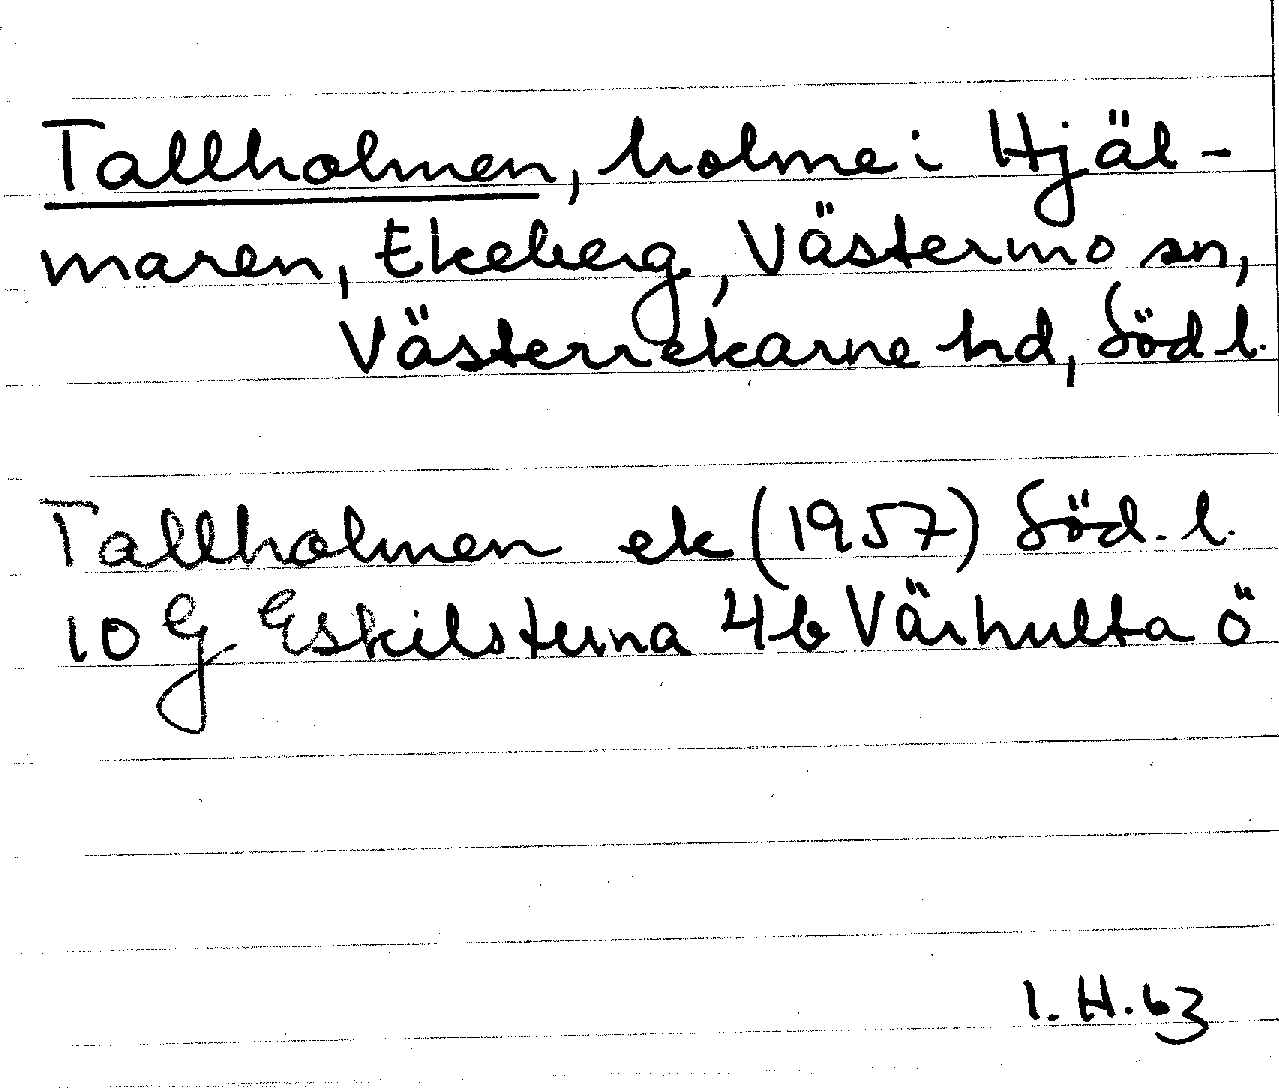 Tallholmen, holme i Hjäl-
maren, Ekeberg, Västermo sn,
Västerrekarne hd, Söd l.
Tallholmen ek (1957) Söd. l.
10 G Eskilstuna 4b Värhulta ö
I. H. 63